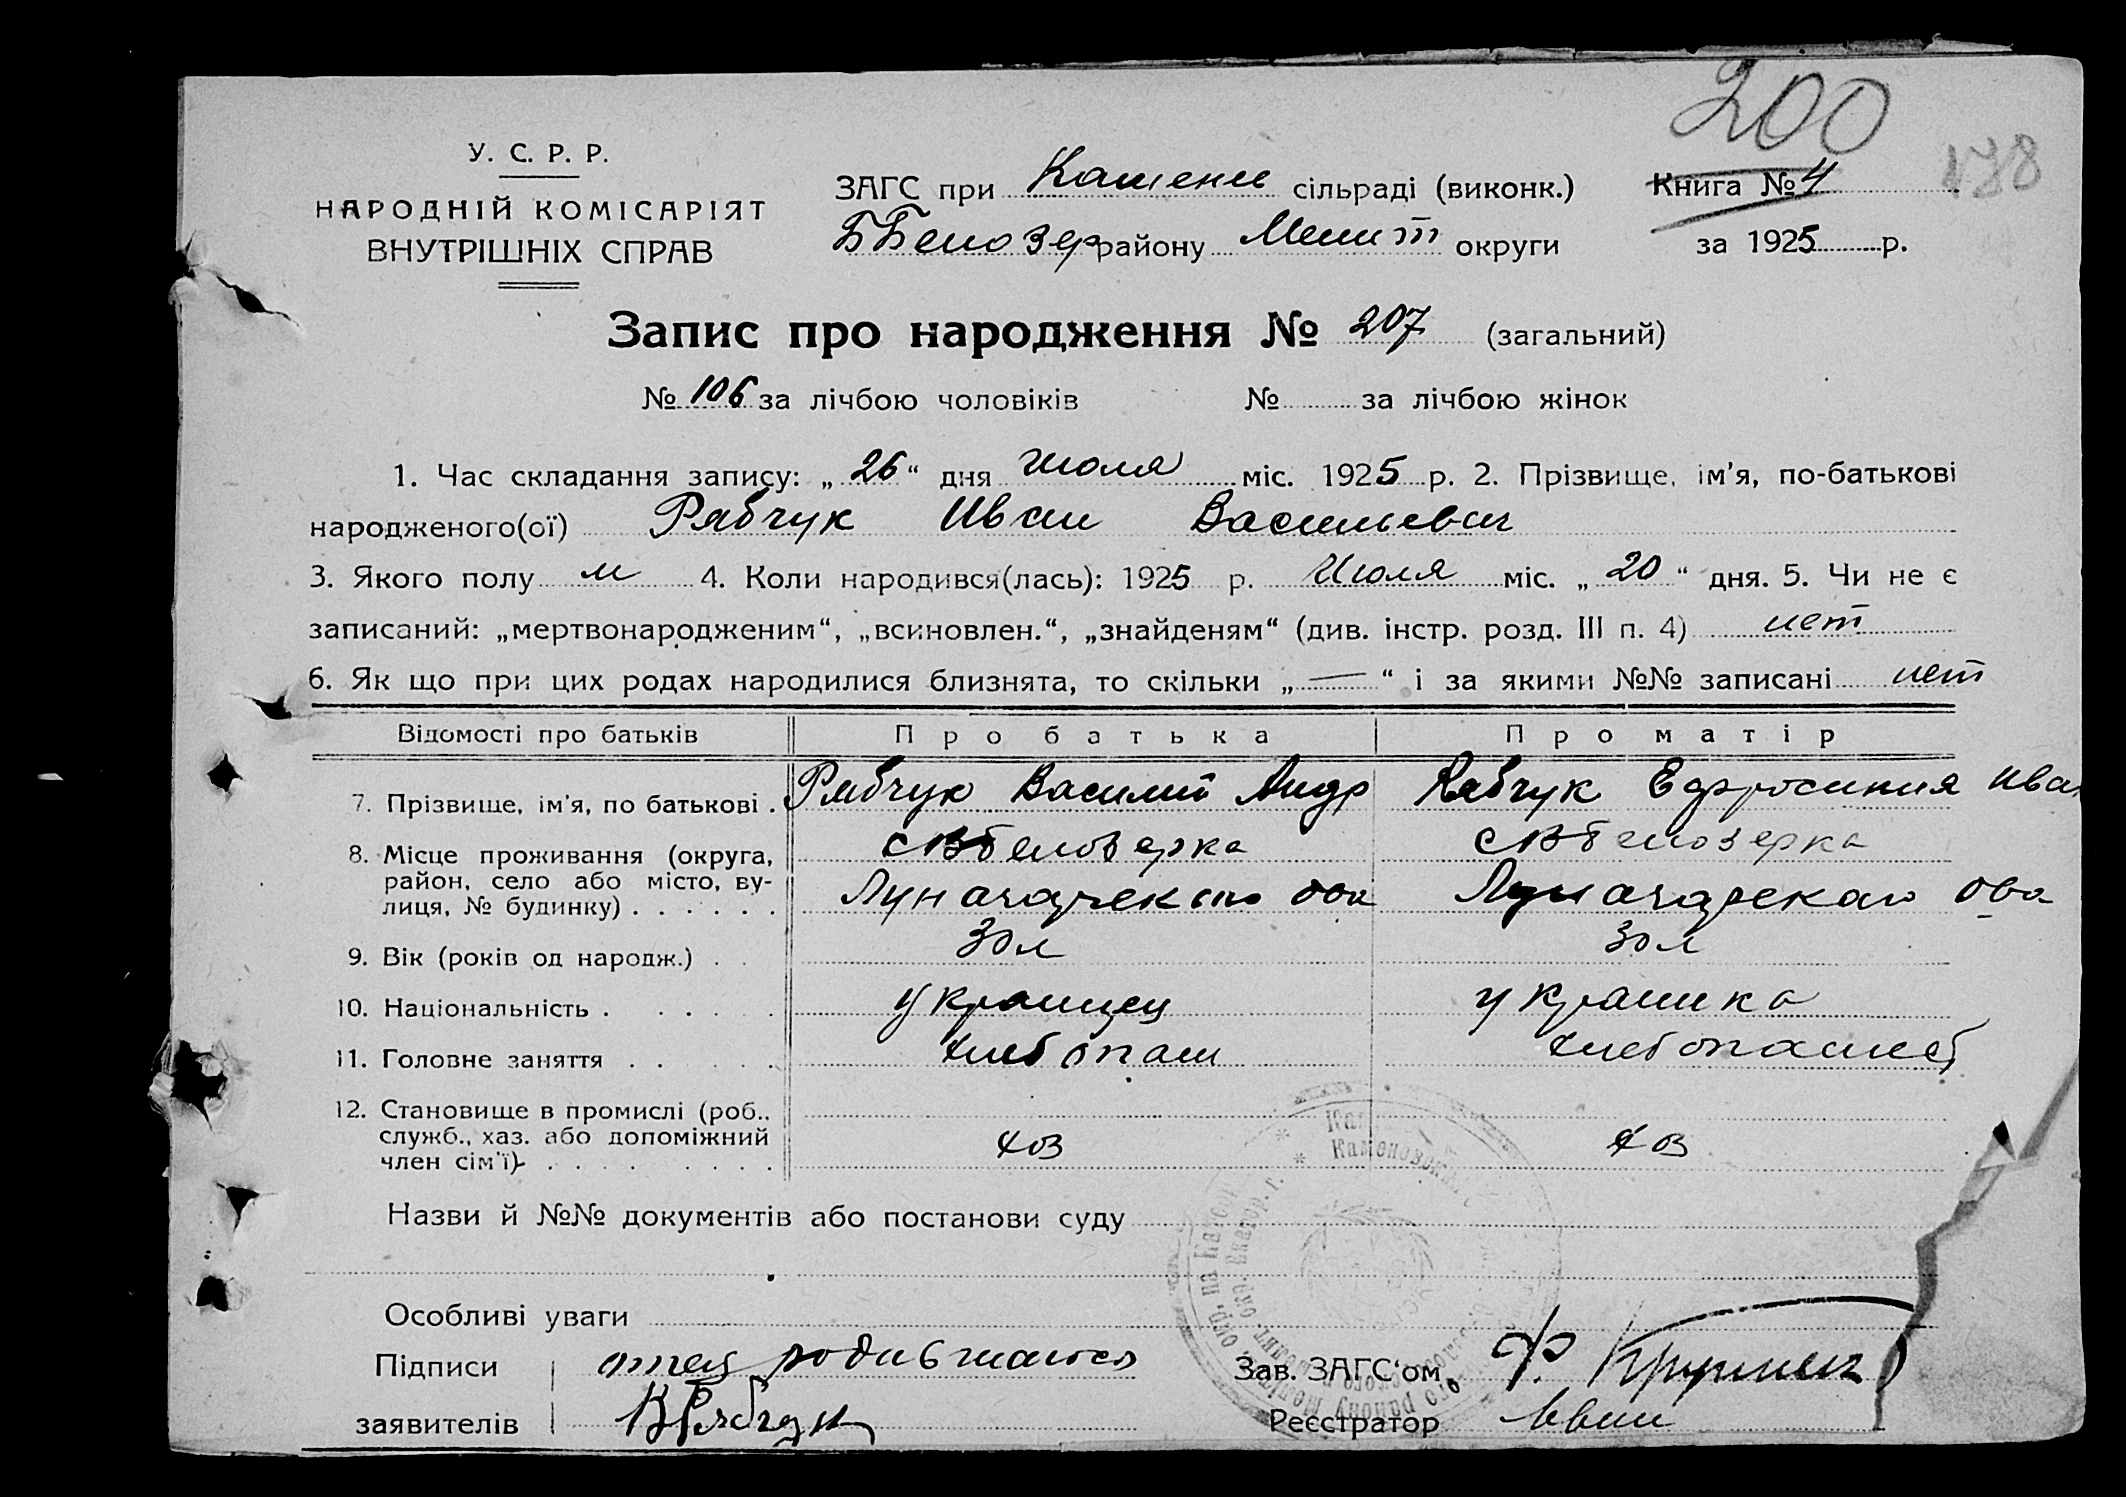 200
138
У. С. Р. Р.
НАРОДНІЙ КОМІСАРІЯТ
ВНУТРІШНІХ СПРАВ
ЗАГС при Каменск сільраді (виконк.)
ББелозер району Мелит округи
Книга № 4
за 1925 р.
Запис про народження № 207 (загальний)
№ 106 за лічбою чоловіків № за лічбою жінок
1. Час складання запису: „ 26 “ дня июля міс. 1925 р. 2. Прізвище, ім'я, по-батькові
народженого(ої) Рябчук Иван Васильевич
3. Якого полу м 4. Коли народився(лась): 1925 р. Июля міс. „ 20 “ дня. 5. Чи не є
записаний: „мертвонародженим“, „всиновлен.“, „знайденям“ (див. інстр. розд. III п. 4) нет
6. Як що при цих родах народилися близнята, то скільки „ — “ і за якими №№ записані нет
Відомості про батьків Про батька Про матір
7. Прізвище, ім'я, по батькові . Рябчук Василий Андр Рябчук Ефросиния Иван
8. Місце проживання (округа, район, село або місто, вулиця, № будинку) . . . . . .
сВбелозерка сВбелозерка
Луначарскаго Луначарскаго ова
9. Вік (років од народж.) . . 30 л 30 л
10. Національність . . . . . . украинец украинка
11. Головне заняття . . . . . хлебопаш хлебопашеб
12. Становище в промислі (роб., служб., хаз. або допоміжний член сім'ї) . . . . . . . .
хоз хоз
Назви й №№ документів або постанови суду
Особливі уваги
Підписи отец родившагося
заявителів В Рябчук
Зав. ЗАГС'ом Ф.
Реєстратор